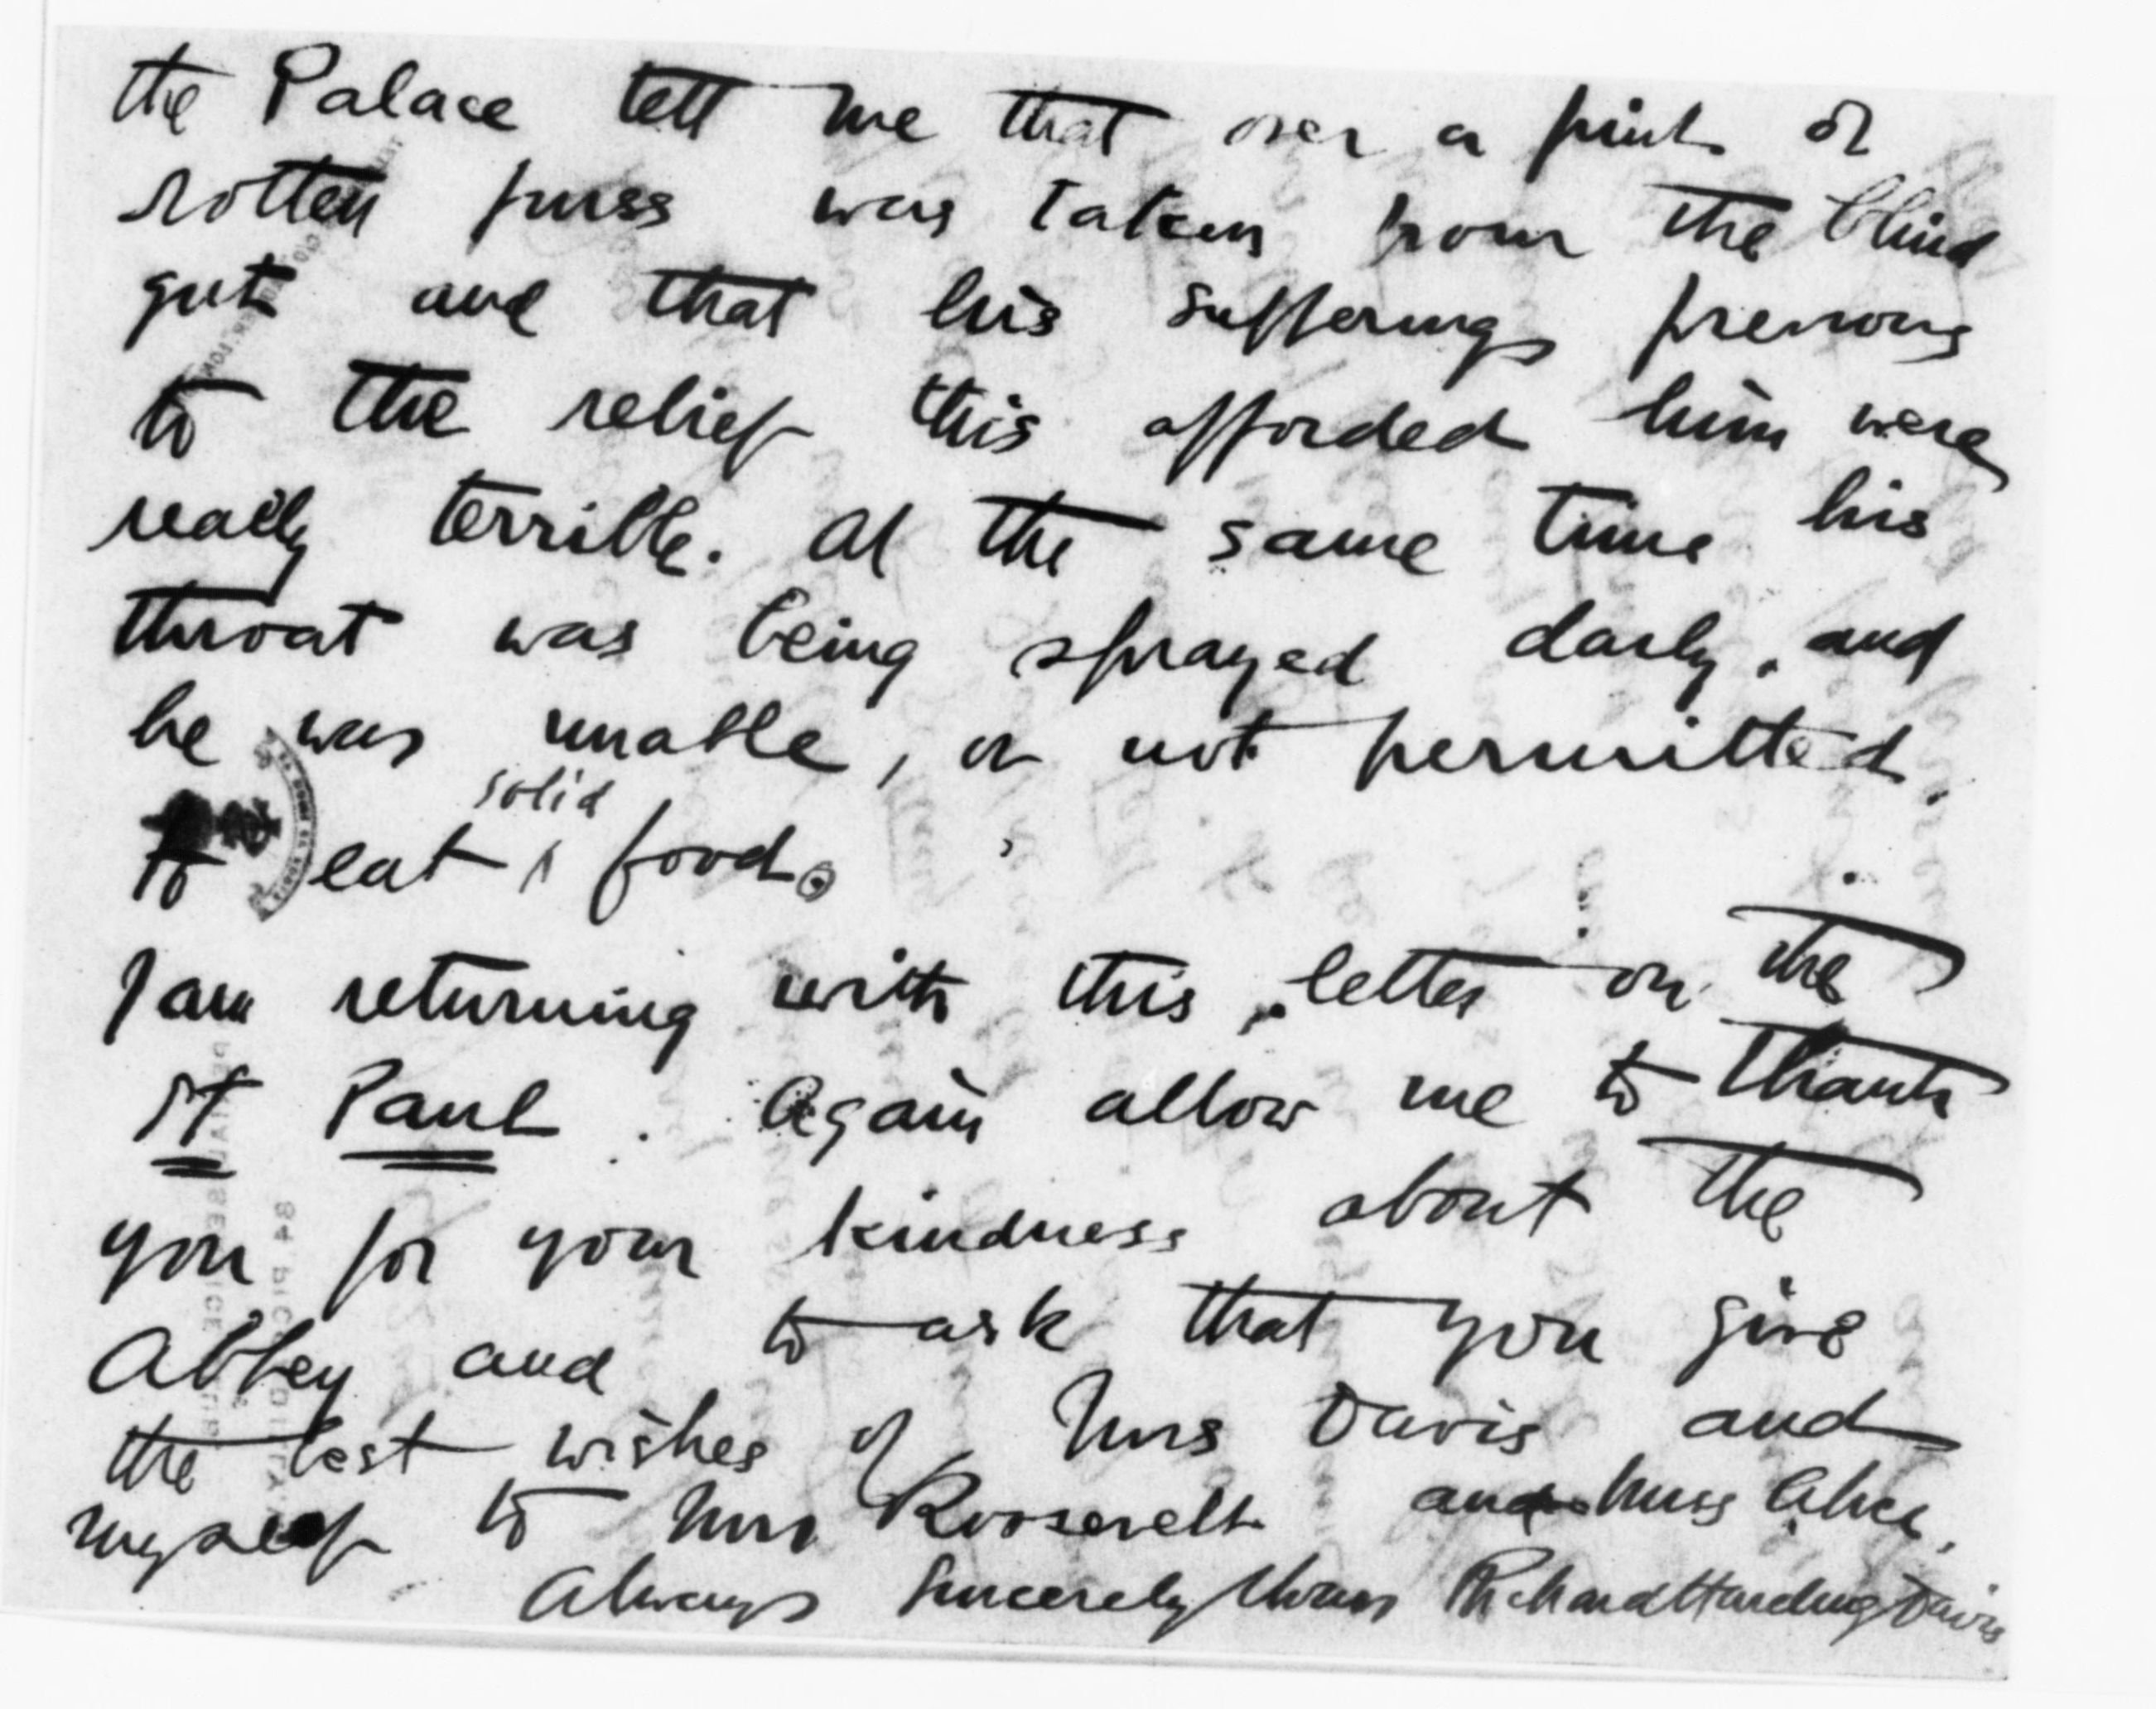 the Palace tell me that over a pint of
rotten puss was taken from the blind
gut and that his sufferings previous
to the relief this afforded him were
really terrible. At the same time his
throat was being sprayed daily, and
he was unable, or not permitted,
solid
to eat ^ food.
I am returning with this letter on the
St Paul. Again allow me to thank
you for your kindness about the
Abbey and to ask that you give
the best wishes of Mrs Davis and
myself to Mrs Roosevelt and Miss Alice.
Always Sincerely Yours Richard Harding Davis